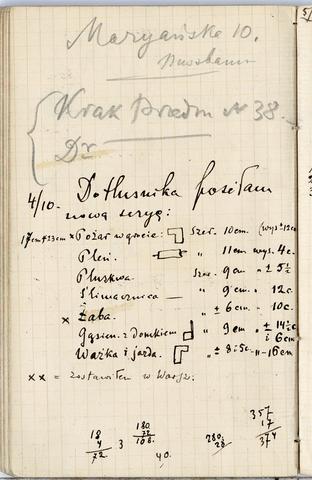 Maryańska 10.
Nussbaum
Krak Przedm N 38
Dr
4/10. Do Tłusnika posełam
nową seryę:
17cm+23cm x Pożar w gnieźe: Szer. 10cm. (wys 12c
Pleń. " 11cm wys. 4c.
Pluskwa. Szer. 9cm " ± 5½
Ślimacznica — " 9cm. " 12c.
x Żaba. " ± 6cm " 10c.
Gąsien. z domkiem " 9cm " ± 14½c
i 6cm
Ważka i jarda. " ± 8i5c. " –16cm
x x = zostawiłem w Warsz.
18
4
72.
3
180
72
108.
40.
280
28
357
17
374